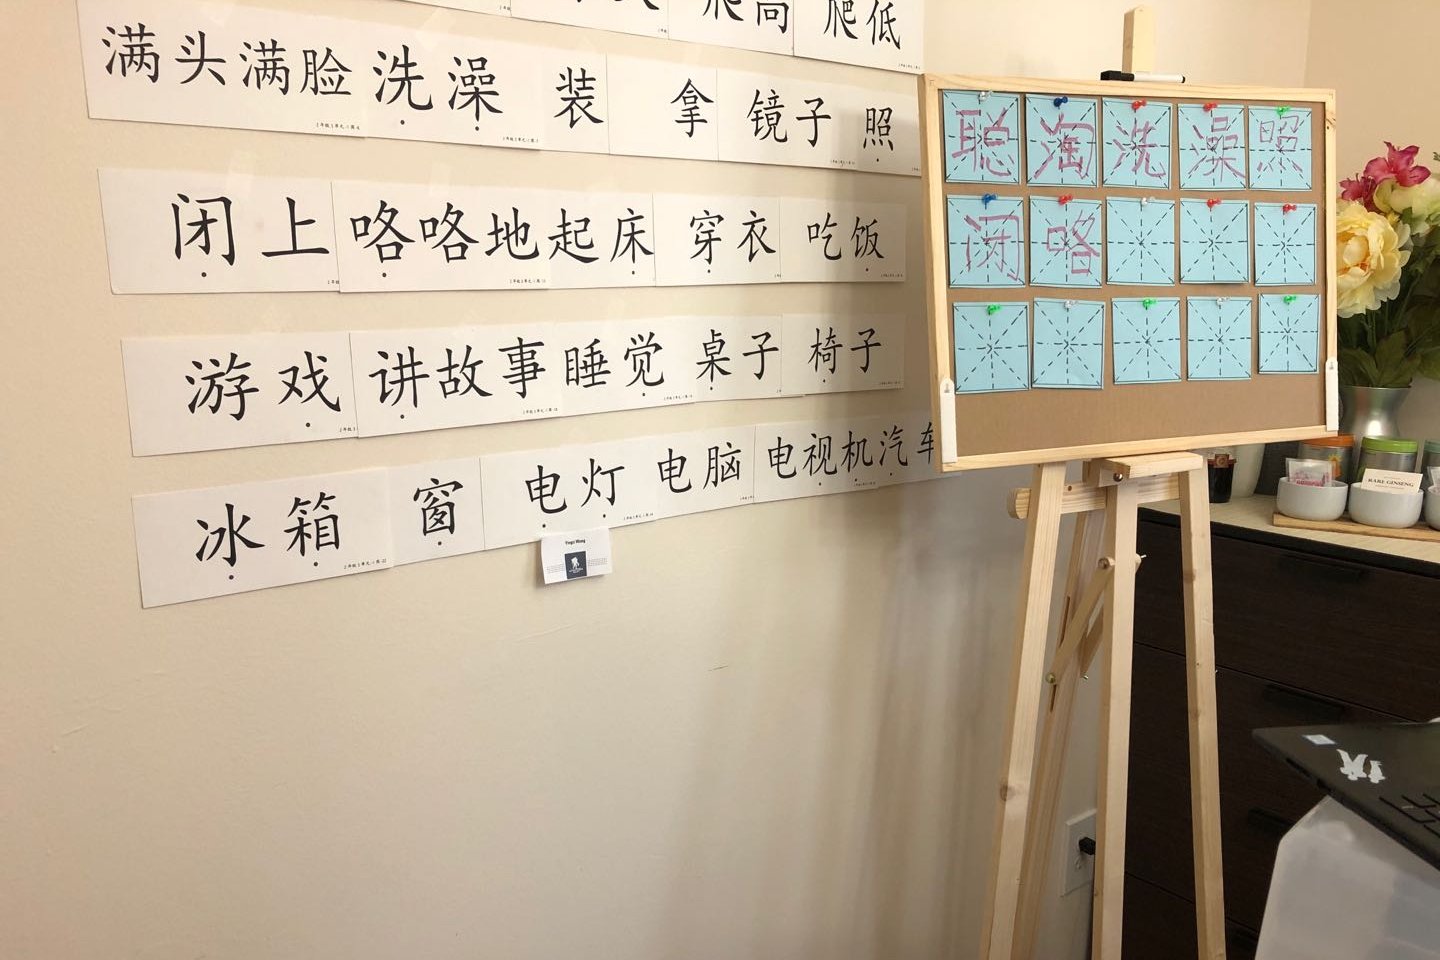 爬高 爬低
满头满脸 洗澡 装 拿 镜子 照
闭上 咯咯地 起床 穿衣 吃饭
游戏 讲故事 睡觉 桌子 椅子
冰箱 窗 电灯 电脑 电视机 汽车
聪 淘 洗 澡 照
闭 咯
RARE GINSENG